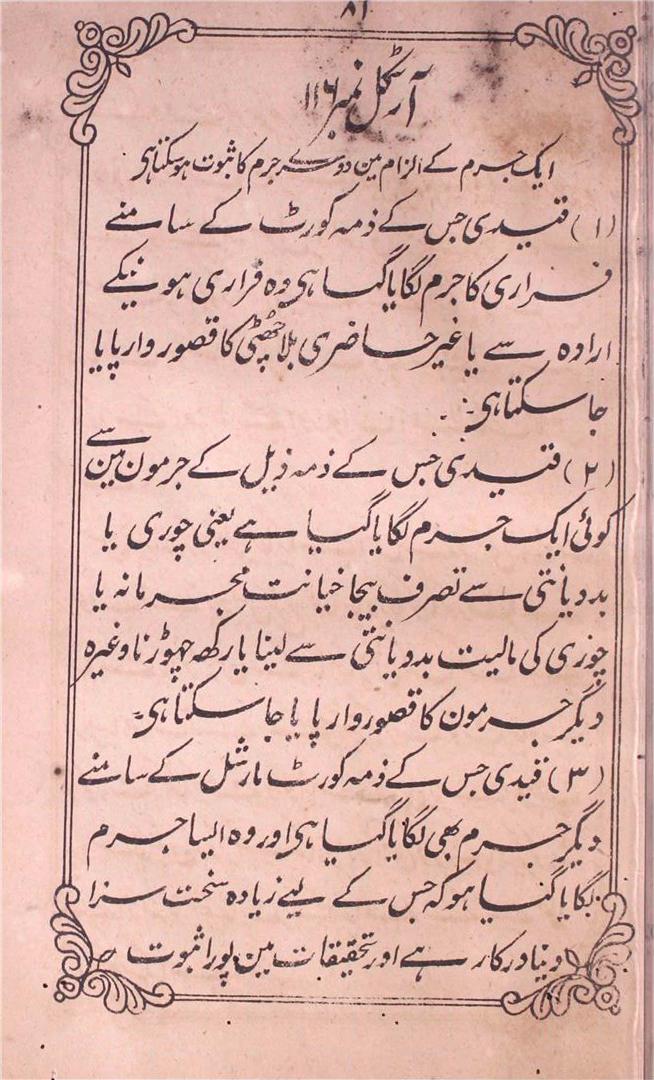 ۸۱
آرٹکل نمبر ۱۱۶
ایک جرم کے الزام مین دوسرے جرم کا ثبوت ہوسکتا ہی
(۱) قیدی جس کے ذمہ کورٹ کے سامنے
فراری کا جرم لگایا گیا ہی وہ فراری ہونیکے
ارادہ سے یا غیر حاضری بلا چھٹی کا قصور وار پایا
جا سکتا ہی۔
(۲) قیدی جس کے ذمہ ذیل کے جرمون مین سے
کوئی ایک جرم لگایا گیا ہے یعنی چوری یا
بددیانتی سے تصرف بیجا خیانت مجرمانہ یا
چوری کی مالیت بددیانتی سے لینا یا رکھ چہوڑنا وغیرہ
دیگر جرمون کا قصور وار پایا جا سکتا ہی۔
(۳) قیدی جس کے ذمہ کورٹ مارشل کے سامنے
دیگر جرم بھی لگایا گیا ہی اور وہ ایسا جرم
لگایا گیا ہو کہ جس کے لیے زیادہ سخت سزا
دینا درکار ہے اور تحقیقات مین پورا ثبوت